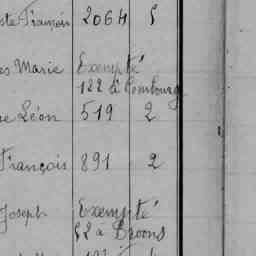 François 2064 5
es Marie Exempté
122 à Combourg
Léon 519 2
François 891 2
Joseph Exempté
52 à Broons